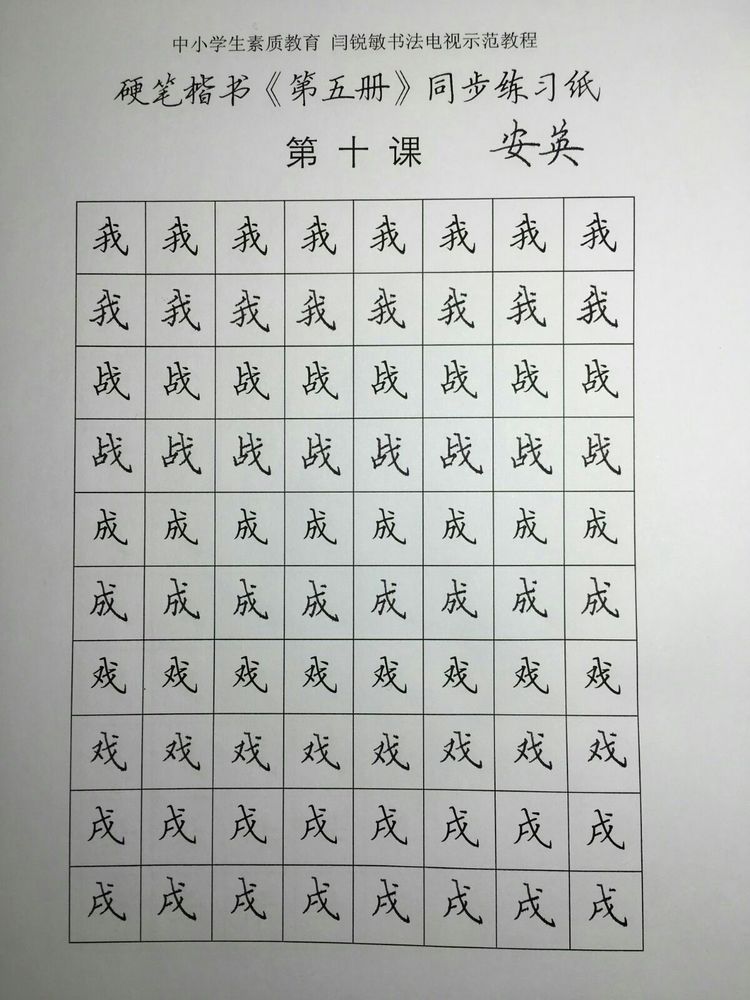 中小学生素质教育 闫锐敏书法电视示范教程
硬笔楷书《第五册》同步练习纸
第十课 安英
我我我我我我我我
我我我我我我我我
战战战战战战战战
战战战战战战战战
成成成成成成成成
成成成成成成成成
戏戏戏戏戏戏戏戏
戏戏戏戏戏戏戏戏
戌戌戌戌戌戌戌戌
戌戌戌戌戌戌戌戌